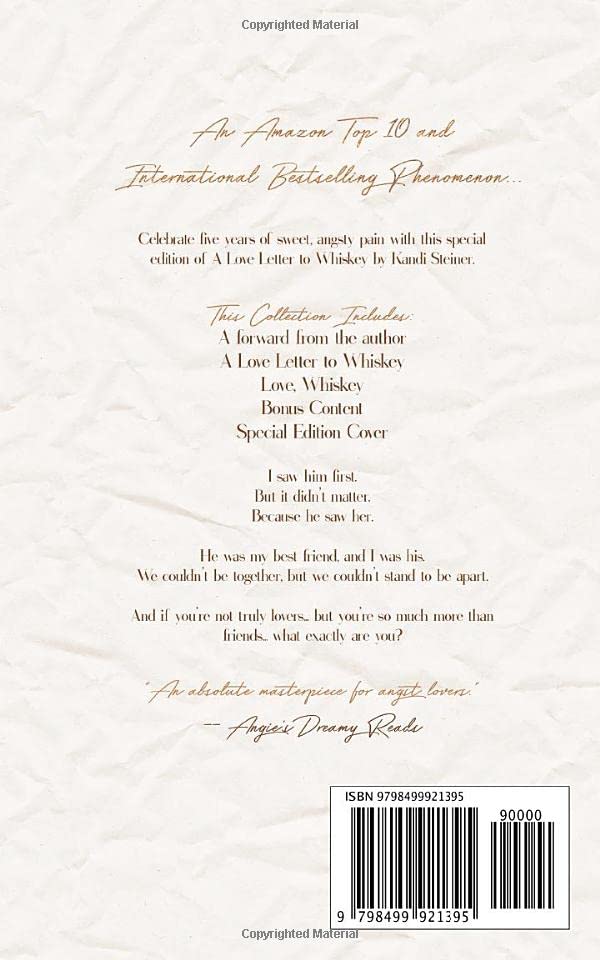 Copyrighted Material
An Amazon Top 10 and
International Bestselling Phenomenon...
Celebrate five years of sweet, angsty pain with this special
edition of A Love Letter to Whiskey by Kandi Steiner.
This Collection Includes:
A forward from the author
A Love Letter to Whiskey
Love, Whiskey
Bonus Content
Special Edition Cover
I saw him first.
But it didn't matter.
Because he saw her.
He was my best friend, and I was his.
We couldn't be together, but we couldn't stand to be apart.
And if you're not truly lovers... but you're so much more than
friends... what exactly are you?
"An absolute masterpiece for angst lovers."
-- Angie's Dreamy Reads
ISBN 9798499921395
90000
9 798499 921395
Copyrighted Material